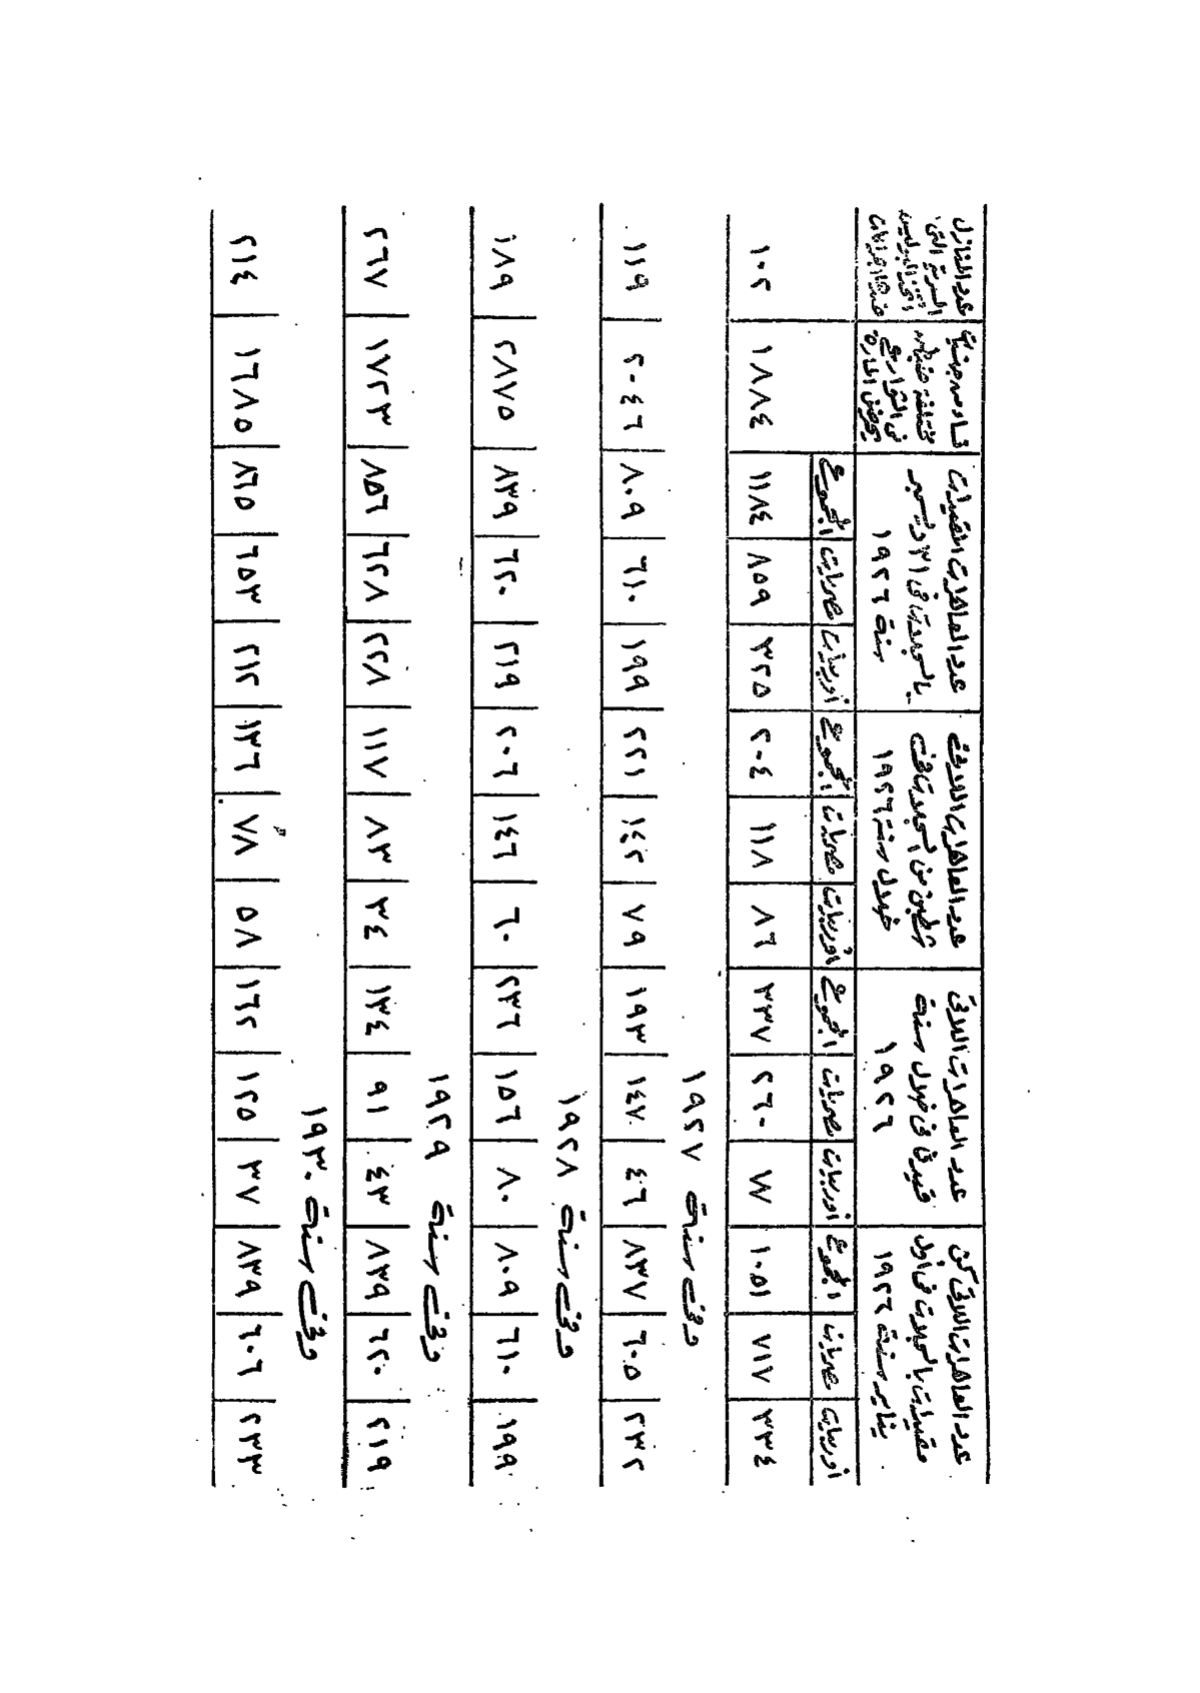 عدد العاهرات اللاتى كن
مقيدات بالسجلات فى أول
يناير سنة ١٩٢٦
عدد العاهرات اللاتى
قيدن فى خلال سنة
١٩٢٦
عدد العاهرات اللاتى
شطبن من السجلات فى
خلال سنة ١٩٢٦
عدد العاهرات المقيدات
بالسجلات فى ٣١ ديسمبر
سنة ١٩٢٦
مختلفة
فى الشوارع
بتحريض المارة
عدد المنازل
السرية التى
اتخذ البوليس
ضدها اجراءات
أوربيات مصريات المجموع أوربيات مصريات المجموع أوربيات مصريات المجموع أوربيات مصريات المجموع
٣٣٤ ٧١٧ ١٠٥١ ٧٧ ٢٦٠ ٣٣٧ ٨٦ ١١٨ ٢٠٤ ٣٢٥ ٨٥٩ ١١٨٤ ١٨٨٤ ١٠٢
وفى سنة ١٩٢٧
٢٣٢ ٦٠٥ ٨٣٧ ٤٦ ١٤٧ ١٩٣ ٧٩ ١٤٢ ٢٢١ ١٩٩ ٦١٠ ٨٠٩ ٢٠٤٦ ١١٩
وفى سنة ١٩٢٨
١٩٩ ٦١٠ ٨٠٩ ٨٠ ١٥٦ ٢٣٦ ٦٠ ١٤٦ ٢٠٦ ٢١٩ ٦٢٠ ٨٣٩ ٢٨٧٥ ١٨٩
وفى سنة ١٩٢٩
٢١٩ ٦٢٠ ٨٣٩ ٤٣ ٩١ ١٣٤ ٣٤ ٨٣ ١١٧ ٢٢٨ ٦٢٨ ٨٥٦ ١٧٢٣ ٢٦٧
وفى سنة ١٩٣٠
٢٣٣ ٦٠٦ ٨٣٩ ٣٧ ١٢٥ ١٦٢ ٥٨ ٧٨ ١٣٦ ٢١٢ ٦٥٣ ٨٦٥ ١٦٨٥ ٢١٤